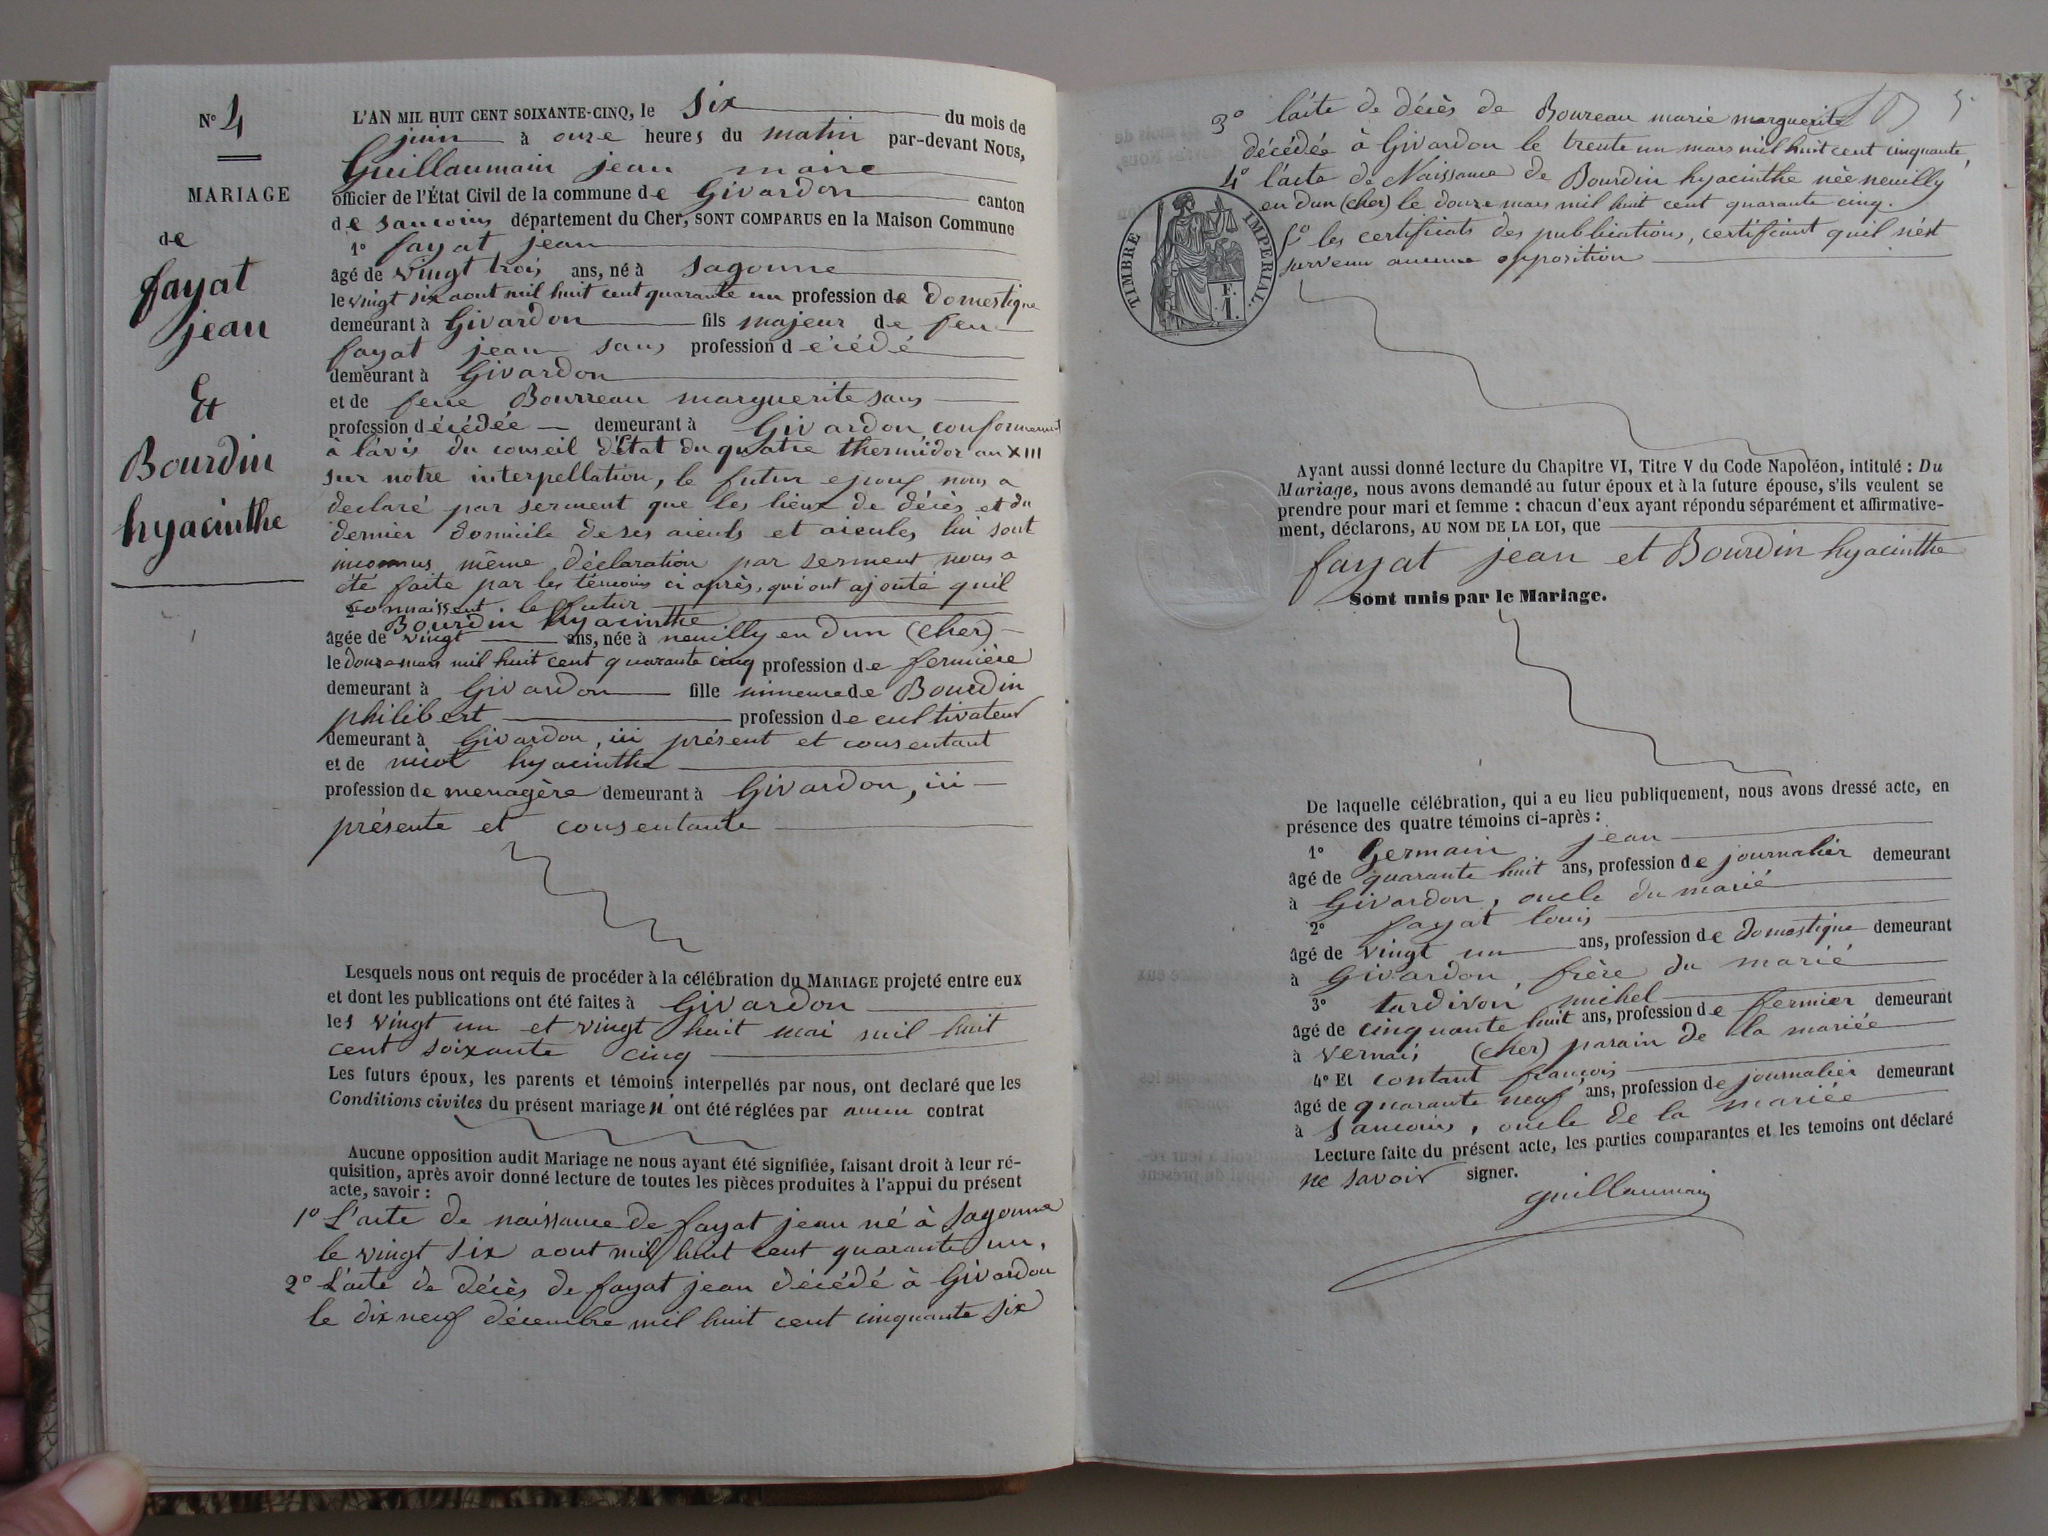 N° 4
MARIAGE
de
fayat
jean
Et
Bourdin
hyacinthe
L'AN MIL HUIT CENT SOIXANTE-CINQ, le six du mois de
juin à onze heures du matin par-devant Nous,
Guillaumain jean maire
officier de l'État Civil de la commune de Givardon canton
de sancoins département du Cher, SONT COMPARUS en la Maison Commune
1° fayat jean
âgé de vingt trois ans, né à Sagonne
le vingt six aout mil huit cent quarante un profession de domestique
demeurant à Givardon fils majeur de feu
fayat jean sans profession décédé
demeurant à Givardon
et de feue Bourreau marguerite sans
profession décédée demeurant à Givardon conformement
à l'avis du conseil d'Etat du quatre thermidor an XIII
sur notre interpellation, le futur epoux nous a
declaré par serment que les lieux de décès et du
dernier domicile de ses aieuls et aieules lui sont
inconnus même déclaration par serment nous a
été faite par les témoins ci après, qui ont ajouté quil
connaissent le futur
2° Bourdin hyacinthe
âgée de vingt ans, née à neuilly en dun (cher)
le douze mars mil huit cent quarante cinq profession de fermière
demeurant à Givardon fille mineure de Bourdin
philibert profession de cultivateur
demeurant à Givardon, ici présent et consentant
et de nicot hyacinthe
profession de menagère demeurant à Givardon, ici
présente et consentante
Lesquels nous ont requis de procéder à la célébration du MARIAGE projeté entre eux
et dont les publications ont été faites à Givardon
les vingt un et vingt huit mai mil huit
cent soixante cinq
Les futurs époux, les parents et témoins interpellés par nous, ont declaré que les
Conditions civiles du présent mariage n'ont été réglées par aucun contrat
Aucune opposition audit Mariage ne nous ayant été signifiée, faisant droit à leur ré-
quisition, après avoir donné lecture de toutes les pièces produites à l'appui du présent
acte, savoir :
1° L'acte de naissance de fayat jean né à Sagonne
le vingt six aout mil huit cent quarante un,
2° L'acte de décès de fayat jean décédé à Givardon
le dix neuf décembre mil huit cent cinquante six
3° l'acte de décès de Boureau marie marguerite
décédée à Givardon le trente un mars mil huit cent cinquante,
4° l'acte de Naissance de Bourdin hyacinthe née neuilly
en dun (cher) le douze mars mil huit cent quarante cinq.
5° les certificats des publications, certifiant quil n'est
survenu aucune opposition
TIMBRE IMPERIAL.
F.
1.
Ayant aussi donné lecture du Chapitre VI, Titre V du Code Napoléon, intitulé : Du
Mariage, nous avons demandé au futur époux et à la future épouse, s'ils veulent se
prendre pour mari et femme : chacun d'eux ayant répondu séparément et affirmative-
ment, déclarons, AU NOM DE LA LOI, que
fayat jean et Bourdin hyacinthe
Sont unis par le Mariage.
De laquelle célébration, qui a eu lieu publiquement, nous avons dressé acte, en
présence des quatre témoins ci-après :
1° Germain jean
âgé de quarante huit ans, profession de journalier demeurant
à Givardon, oncle du marié
2° fayat louis
âgé de vingt un ans, profession de domestique demeurant
à Givardon, frère du marié
3° tardivon michel
âgé de cinquante huit ans, profession de fermier demeurant
à vernais (cher) parain de la mariée
4° Et contant francois
âgé de quarante neuf ans, profession de journalier demeurant
à Sancoins, oncle de la mariée
Lecture faite du présent acte, les parties comparantes et les temoins ont déclaré
ne savoir signer.
guillaumain